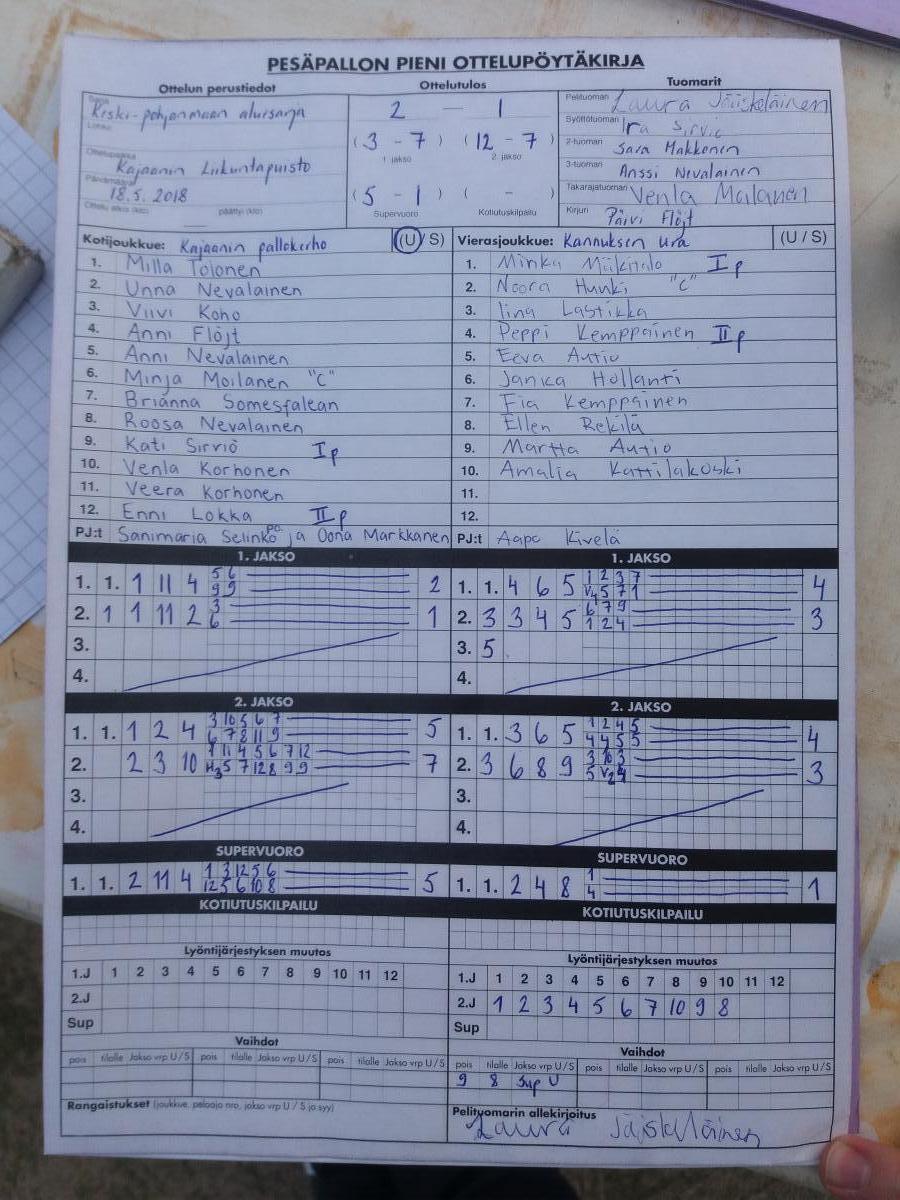 PESÄPALLON PIENI OTTELUPÖYTÄKIRJA
Ottelun perustiedot
Sarja Keski-pohjanmaan aluesarja
Lohko
Ottelupaikka Kajaanin Liikuntapuisto
Päivämäärä 18.5. 2018
Ottelu alkoi (klo) päättyi (klo)
Ottelutulos
2 — 1
( 3 - 7 ) ( 12 - 7 )
1. jakso 2. jakso
( 5 - 1 ) ( - )
Supervuoro Kotiutuskilpailu
Tuomarit
Pelituomari Laura Jäiskeläinen
Syöttötuomari Ira Sirviö
2-tuomari Sara Makkonen
3-tuomari Anssi Nevalainen
Takarajatuomari Venla Malanen
Kirjuri Päivi Flöjt
Kotijoukkue: Kajaanin pallokerho (U/ S)
1. Milla Tolonen
2. Unna Nevalainen
3. Viivi Koho
4. Anni Flöjt
5. Anni Nevalainen
6. Minja Moilanen "C"
7. Brianna Somesfalean
8. Roosa Nevalainen
9. Kati Sirviö I p
10. Venla Korhonen
11. Veera Korhonen
12. Enni Lokka II p
PJ:t Sanimaria Selinko ja Oona Markkanen
Vierasjoukkue: Kannuksen Ura (U / S)
1. Minka Mäkitalo I p
2. Noora Hunki "C"
3. Iina Lastikka
4. Peppi Kemppainen II p
5. Eeva Autio
6. Janica Hollanti
7. Fia Kemppainen
8. Ellen Rekilä
9. Martta Autio
10. Amalia Kattilakoski
11.
12.
PJ:t Aapo Kivelä
1. JAKSO
1. 1. 1 11 4 5 6 2
9 9
2. 1 1 11 2 3 1
6
3.
4.
1. JAKSO
1. 1. 4 6 5 1 2 3 7 4
V4 5 7 1
2. 3 3 4 5 6 7 9 3
1 2 4
3. 5
4.
2. JAKSO
1. 1. 1 2 4 3 10 5 6 7 5
6 7 8 11 9
2. 2 3 10 1 11 4 5 6 7 12 7
H3 5 7 12 8 9 9
3.
4.
2. JAKSO
1. 1. 3 6 5 1 2 4 5 4
4 4 5 5
2. 3 6 8 9 3 10 3 3
5 V2 4
3.
4.
SUPERVUORO
1. 1. 2 11 4 1 3 12 5 6 5
12 5 6 10 8
SUPERVUORO
1. 1. 2 4 8 1 1
4
KOTIUTUSKILPAILU
KOTIUTUSKILPAILU
Lyöntijärjestyksen muutos
1.J 1 2 3 4 5 6 7 8 9 10 11 12
2.J
Sup
Lyöntijärjestyksen muutos
1.J 1 2 3 4 5 6 7 8 9 10 11 12
2.J 1 2 3 4 5 6 7 10 9 8
Sup
Vaihdot
pois tilalle Jakso vrp U/S pois tilalle Jakso vrp U/S pois tilalle Jakso vrp U/S
Rangaistukset (joukkue, pelaaja nro, jakso vrp U / S ja syy)
Vaihdot
pois tilalle Jakso vrp U/S pois tilalle Jakso vrp U/S pois tilalle Jakso vrp U/S
9 8 Sup U
Pelituomarin allekirjoitus
Laura Jäiskeläinen